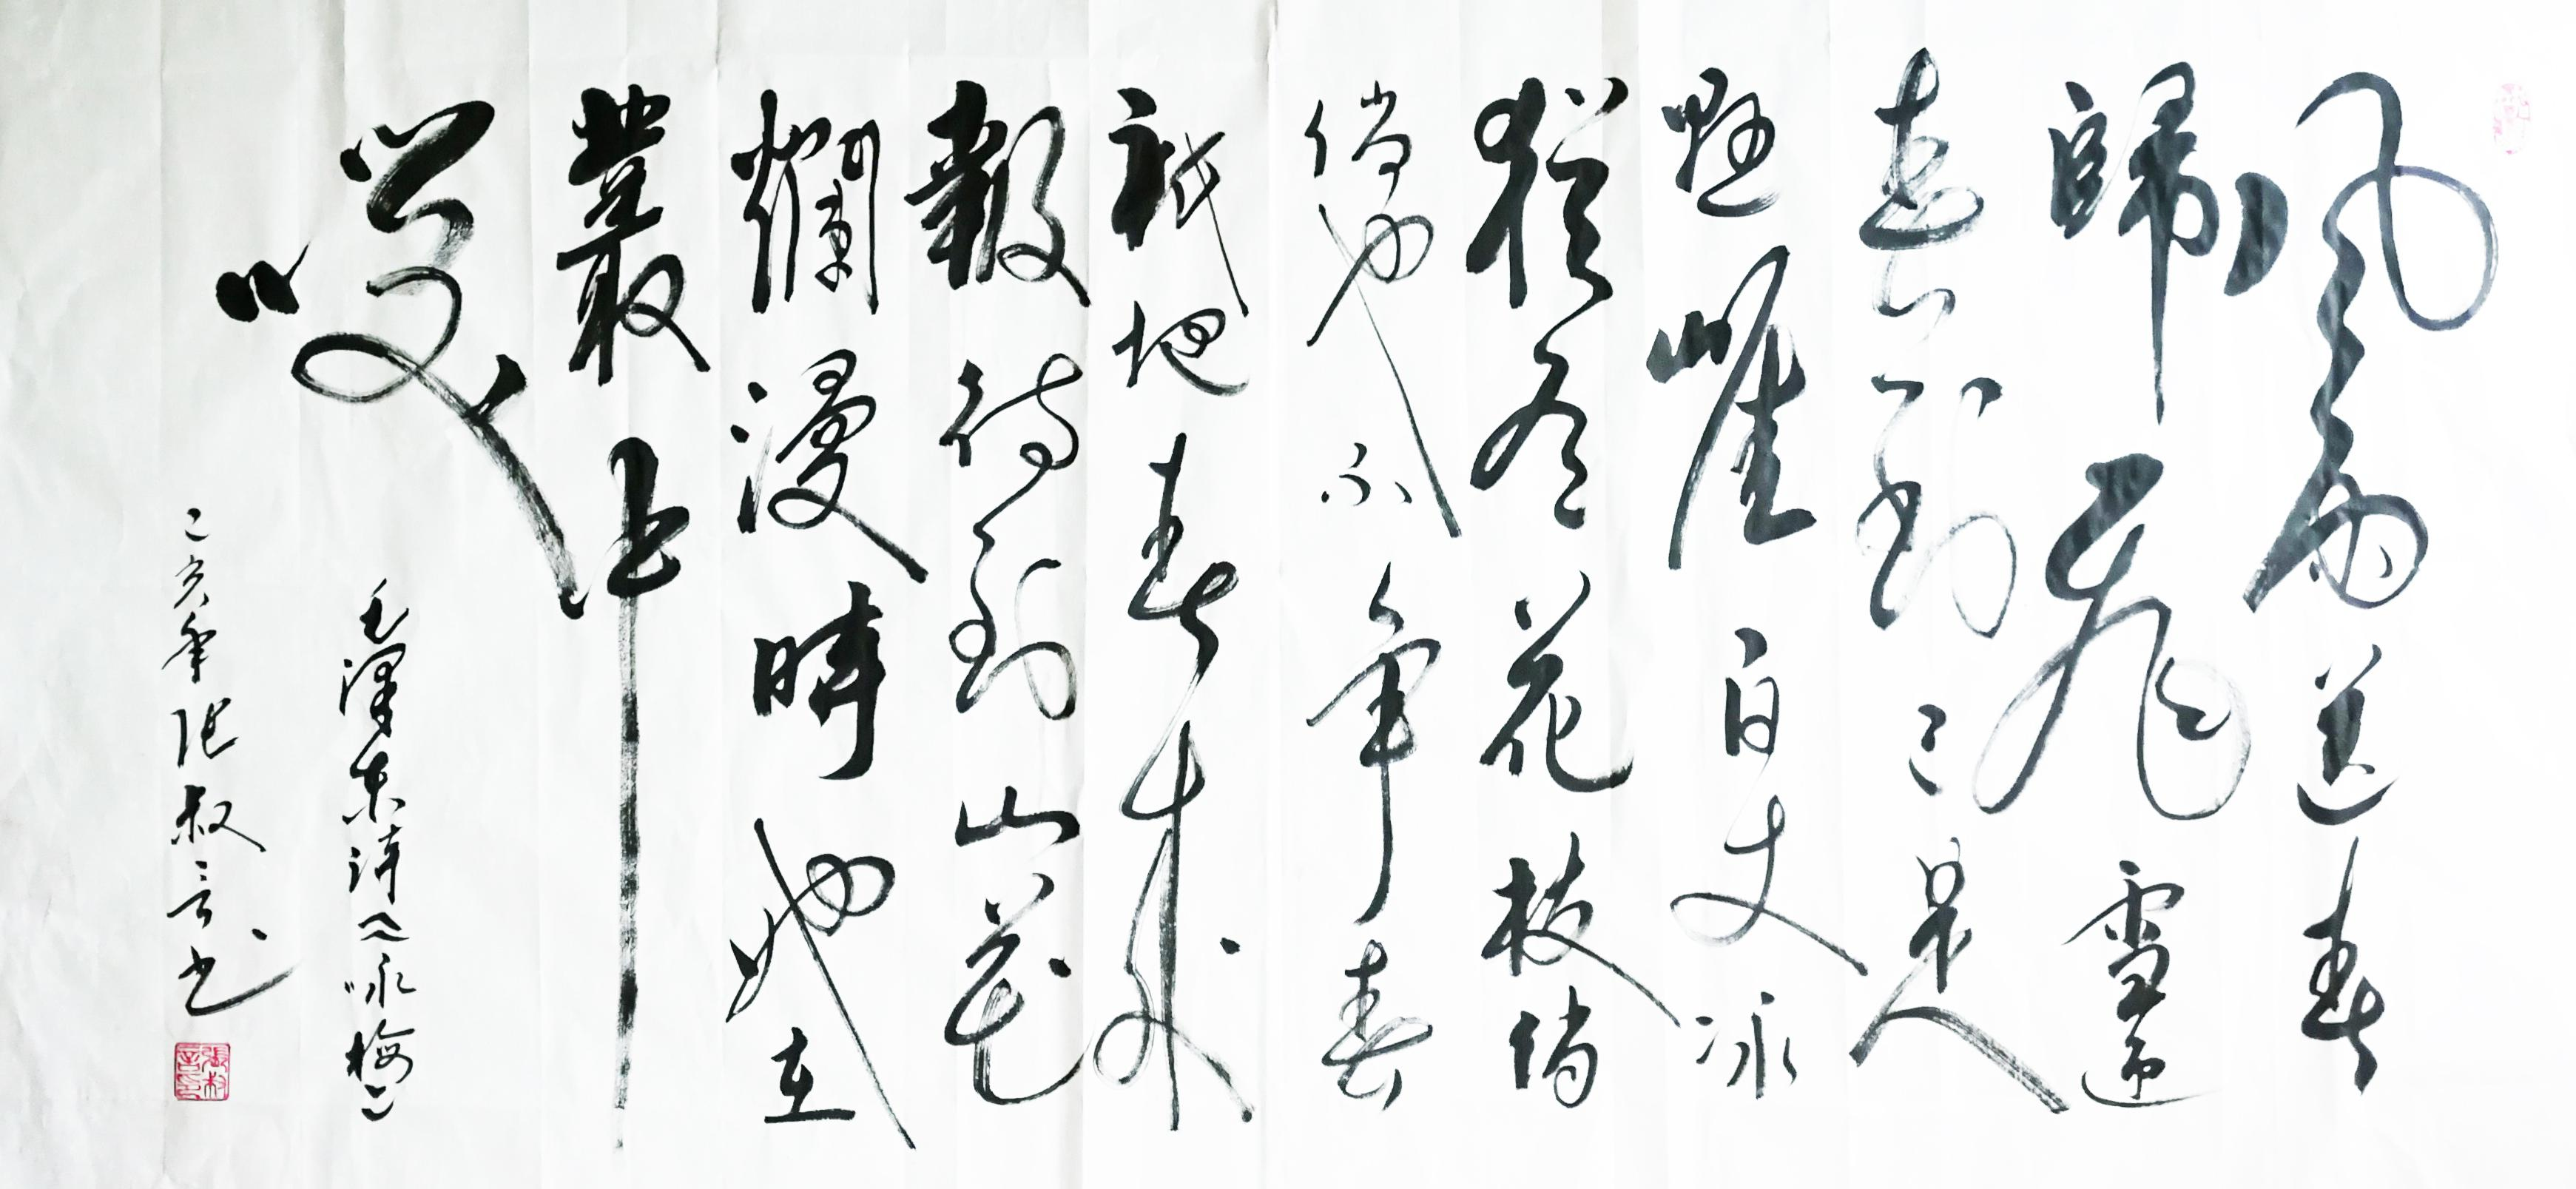 風雨送春
歸飛雪迎
春到已是
悬崖百丈冰
猶有花枝俏
俏也不争春
祇把春来
報待到山花
爛漫時她在
叢中
笑
毛澤東詩《咏梅》
己亥年张叔言书
張叔言印